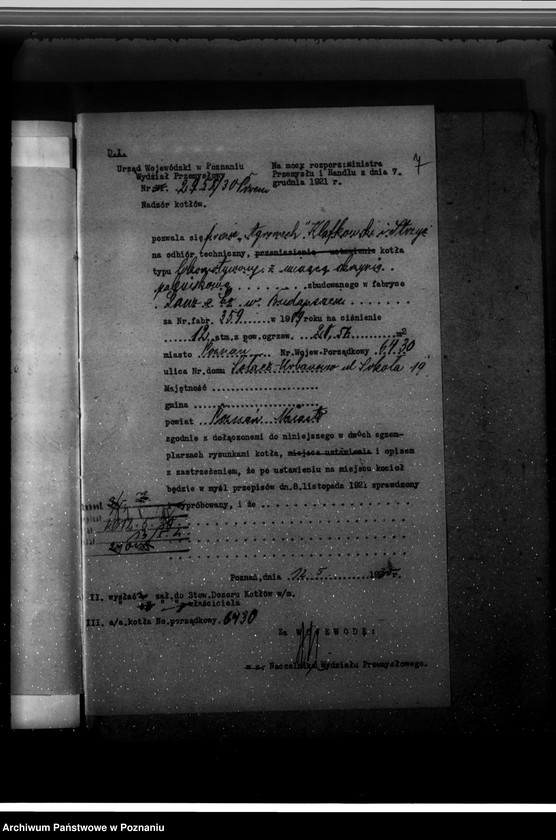 D.I.
Urząd Wojewódzki w Poznaniu
Wydział Przemysłowy
Nr 2951/30
Nadzór kotłów.
Na mocy rozporz:ministra
Przemysłu i Handlu z dnia 7.
grudnia 1921 r.
7
pozwala się firmie "Agrowech" Klafkowski i
na odbiór techniczny, przeniesienie ustawienie kotła
typu lokomotywowy z
paleniskową zbudowanego w fabryce
Lanz w Budapeszcie
za Nr.fabr. 359 w 1919 roku na ciśnienie
12 atm.z pow.ogrzew. 28,56 m2
miasto Poznań Nr.Wojew.Porządkowy 6430
ulica Nr.domu Urbanowo ul Sokoła 19
Majętność
gmina
powiat Poznań Miasto
zgodnie z dołączonemi do niniejszego w dwóch egzem-
plarzach rysunkami kotła, miejsca ustawienia i opisem
z zastrzeżeniem, że po ustawieniu na miejscu kocioł
będzie w myśl przepisów dn.8.listopada 1921 sprawdzony
i wypróbowany, i że
Poznań,dnia 14.5 193 r.
II. wysłać zał.do Stow.Dozoru Kotłów w/m.
" " właściciela
III. a/a.kotła No.porządkowy. 6430
Za WOJEWODĘ:
Naczelnik Wydziału Przemysłowego.
Archiwum Państwowe w Poznaniu